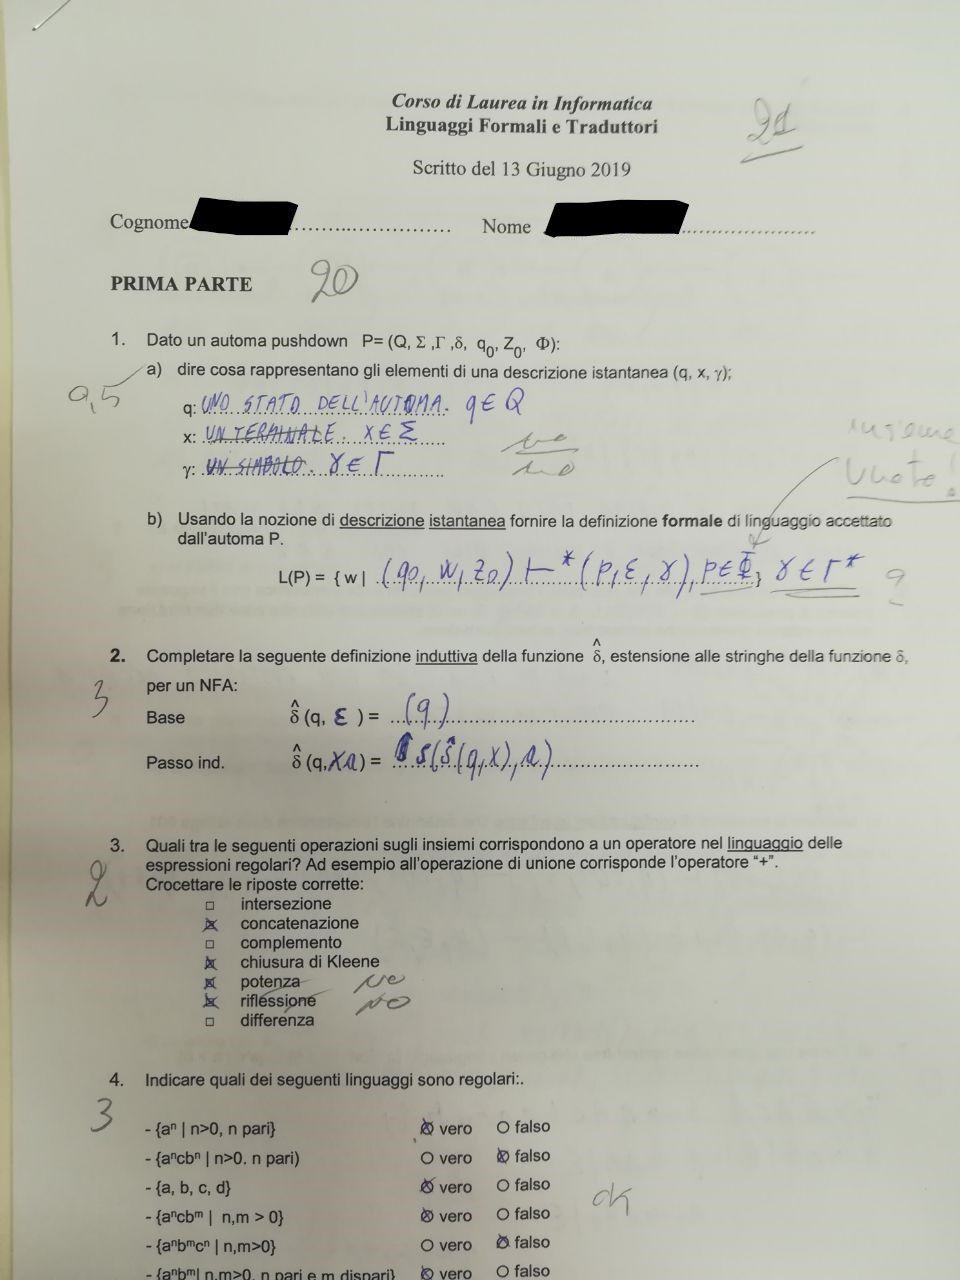 Corso di Laurea in Informatica
Linguaggi Formali e Traduttori
21
Scritto del 13 Giugno 2019
Cognome .................... Nome ....................
PRIMA PARTE 20
1. Dato un automa pushdown P= (Q, Σ ,Γ ,δ, q0, Z0, Φ):
a) dire cosa rappresentano gli elementi di una descrizione istantanea (q, x, γ);
0,5
q: UNO STATO DELL'AUTOMA. q ∈ Q
x: UN TERMINALE. X ∈ Σ
γ: UN SIMBOLO. γ ∈ Γ
no
insieme
vuoto!
b) Usando la nozione di descrizione istantanea fornire la definizione formale di linguaggio accettato
dall'automa P.
L(P) = { w | (q0, W, Z0) ⊢* (P, ε, γ), P∈Φ } γ ∈ Γ* ?
2. Completare la seguente definizione induttiva della funzione δ̂, estensione alle stringhe della funzione δ,
per un NFA:
3
Base δ̂ (q, ε ) = (q)
Passo ind. δ̂ (q, Xa) = δ(δ̂(q,X), a)
3. Quali tra le seguenti operazioni sugli insiemi corrispondono a un operatore nel linguaggio delle
espressioni regolari? Ad esempio all'operazione di unione corrisponde l'operatore "+".
2
Crocettare le riposte corrette:
□ intersezione
☒ concatenazione
□ complemento
☒ chiusura di Kleene
☒ potenza NO
☒ riflessione NO
□ differenza
4. Indicare quali dei seguenti linguaggi sono regolari:.
3
- {aⁿ | n>0, n pari} ⊗ vero O falso
- {aⁿcbⁿ | n>0. n pari) O vero ⊗ falso
- {a, b, c, d} ⊗ vero O falso
- {aⁿcbᵐ | n,m > 0} ⊗ vero O falso
ok
- {aⁿbᵐcⁿ | n,m>0} O vero ⊗ falso
- {aⁿbᵐ| n,m>0, n pari e m dispari} ⊗ vero O falso